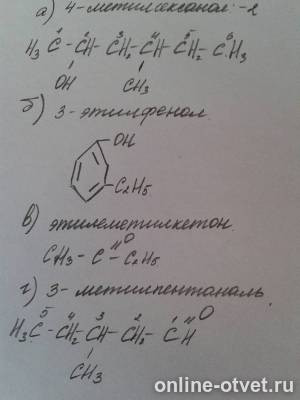 а) 4-метилгексанол-2
1 2 3 4 5 6
H₃C - CH - CH₂ - CH - CH₂ - CH₃
OH CH₃
б) 3-этилфенол
OH
C₂H₅
в) этилметилкетон.
CH₃ - C - C₂H₅
O
г) 3-метилпентаналь.
5 4 3 2 1 O
H₃C - CH₂ - CH - CH₂ - C H
CH₃
online-otvet.ru